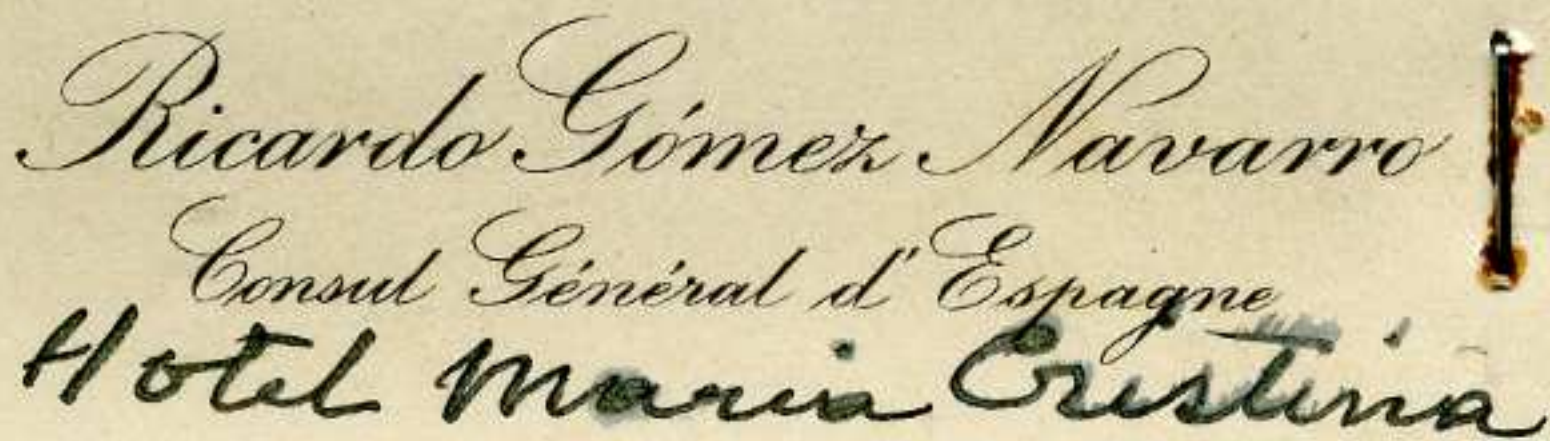 Ricardo Gómez Navarro
Consul Général d'Espagne
Hotel Maria Cristina